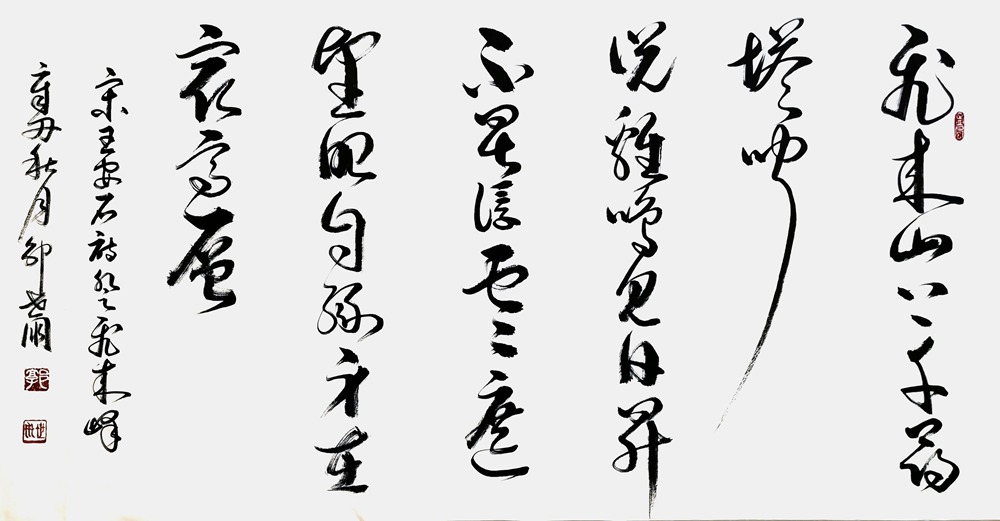 飛来山上千尋
塔聞
説雞鳴見日昇
不畏浮雲遮
望眼自緣身在
最高層
宋王安石詩登飛来峰
辛丑秋月